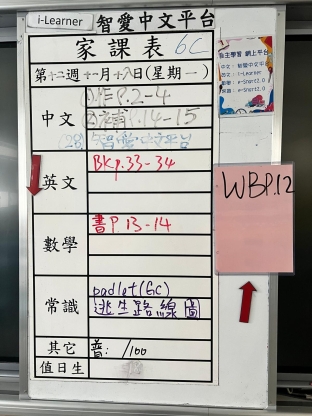 i-Learner 智愛中文平台
家課表 6C
第十二週 十一月十八日(星期一)
中文
(1)作P.2-4
(2)補P.14-15
智愛中文平台
英文
BKp.33-34
數學
書P.13-14
常識
padlet(6C)
逃生路線圖
其它
普: /100
值日生
自主學習 網上平台
中文:智愛中文平台
英文:i-Learner
數學:e-Smart2.0
常識:e-Smart2.0
WBP.12